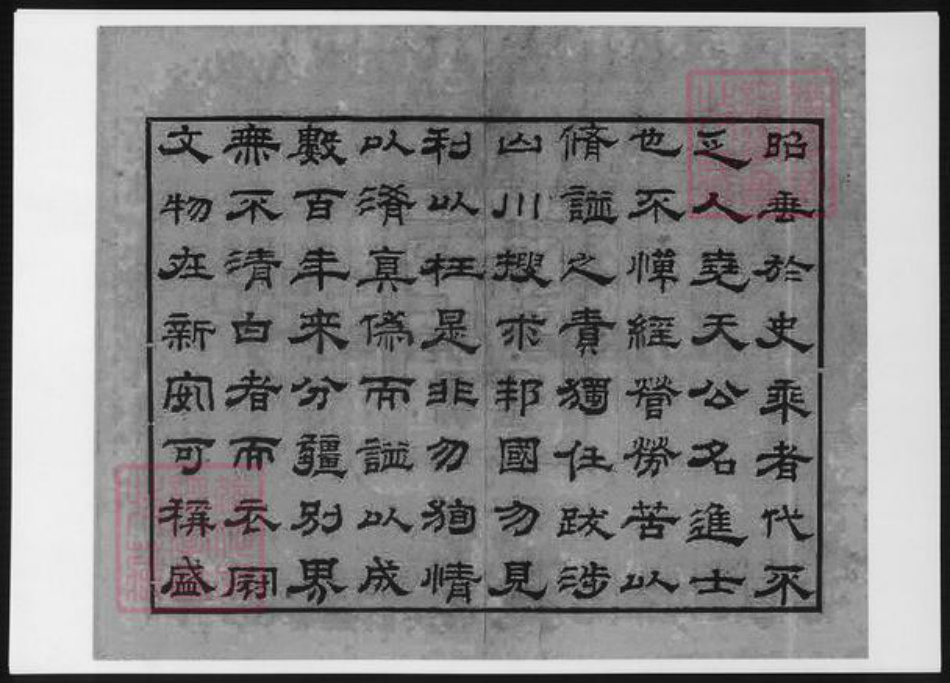 昭垂於史乘者代不
乏人堯天公名進士
也不憚經營勞苦以
脩譜之責獨任跋涉
山川搜求邦國勿見
利以枉是非勿狥情
以淆真偽而譜以成
數百年来分疆别界
無不清白者而衣冠
文物在新安可稱盛